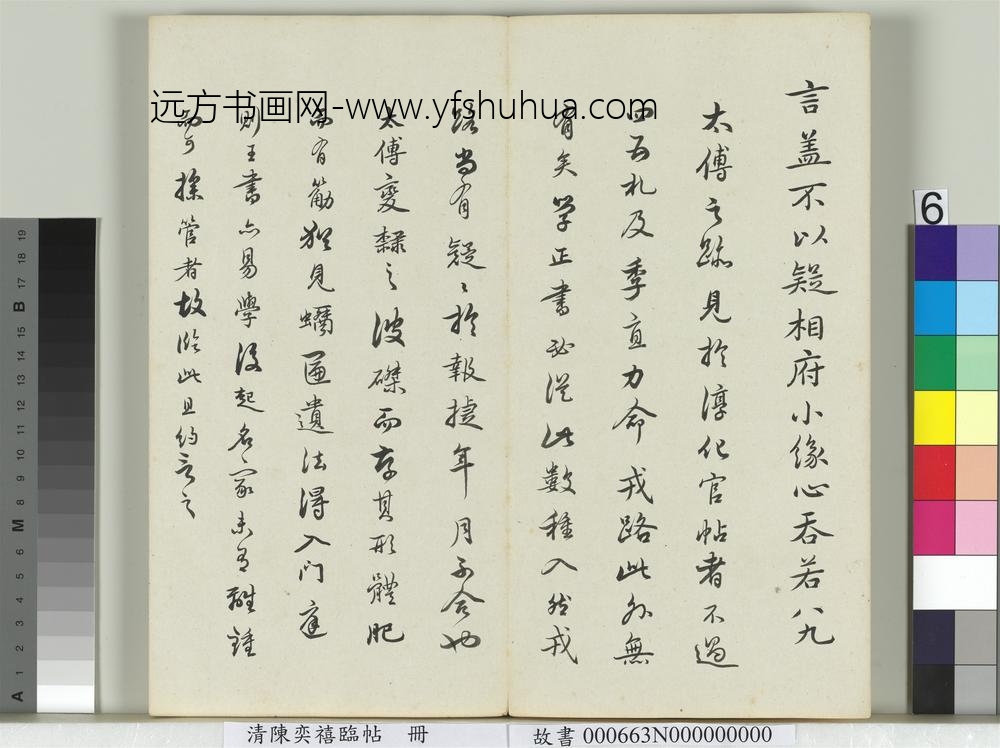 言蓋不以疑相府小緣心吞若八九
太傅之跡見於淳化官帖者不過
四五札及季直力命戎路此外無
有矣學正書必從此數種入然戎
路尚有疑疑於報捷年月不合也
太傅變隸之波磔而存其形體肥
而有筋猶見蠣匾遺法得入門庭
則王書亦易學後起名家未有離鍾
可操管者故臨此且約言之
远方书画网-www.yfshuhua.com
6
19
18
17
16
15
B
14
13
12
11
10
9
8
M
7
6
5
4
3
2
1
A
清陳奕禧臨帖 冊
故書 000663N000000000